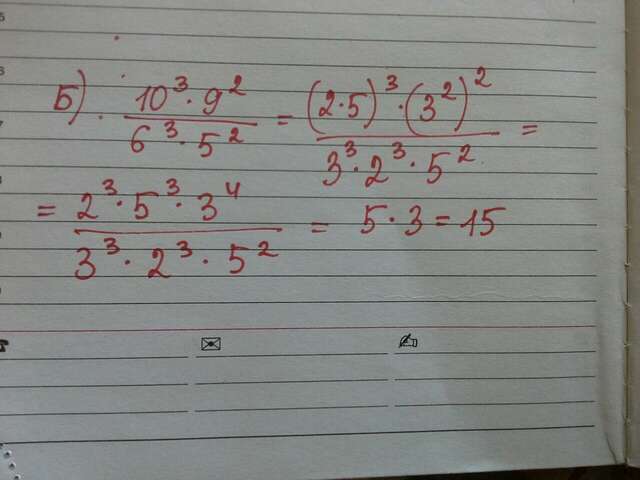 Б) 10³·9² / 6³·5² = (2·5)³·(3²)² / 3³·2³·5² =
= 2³·5³·3⁴ / 3³·2³·5² = 5·3=15